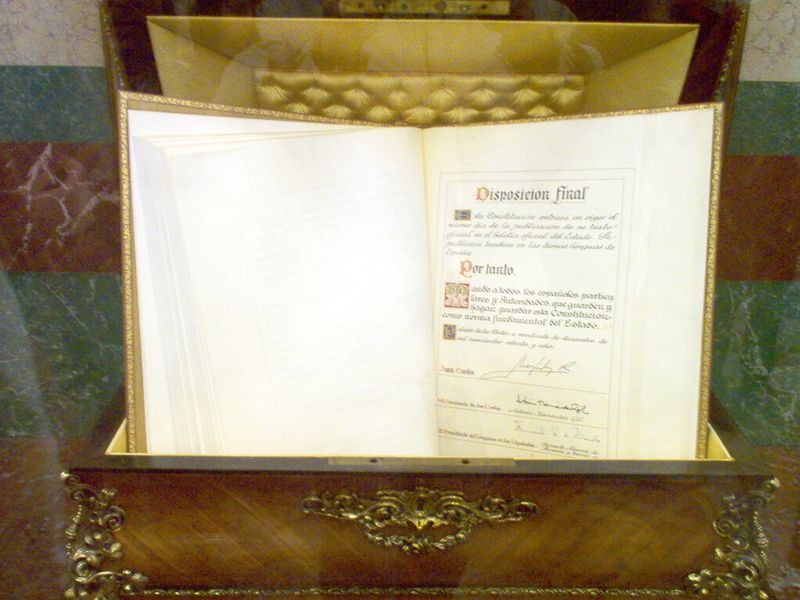 Disposicion final
La Constitucion entrará en vigor el
mismo dia de la publicacion de su texto
oficial en el boletin oficial del Estado. Se
publicara tambien en las demas lenguas de
España.
Por tanto,
Mando a todos los españoles, particu
lares y Autoridades, que guarden y
hagan guardar esta Constitucion
como norma fundamental del Estado.
Palacio de las Cortes a veintisiete de diciembre de
mil novecientos setenta y ocho
Juan Carlos
El Presidente de las Cortes
Antonio Hernandez Gil
El Presidente del Congreso de los Diputados
Fernando Alvarez de
Miranda y Torres